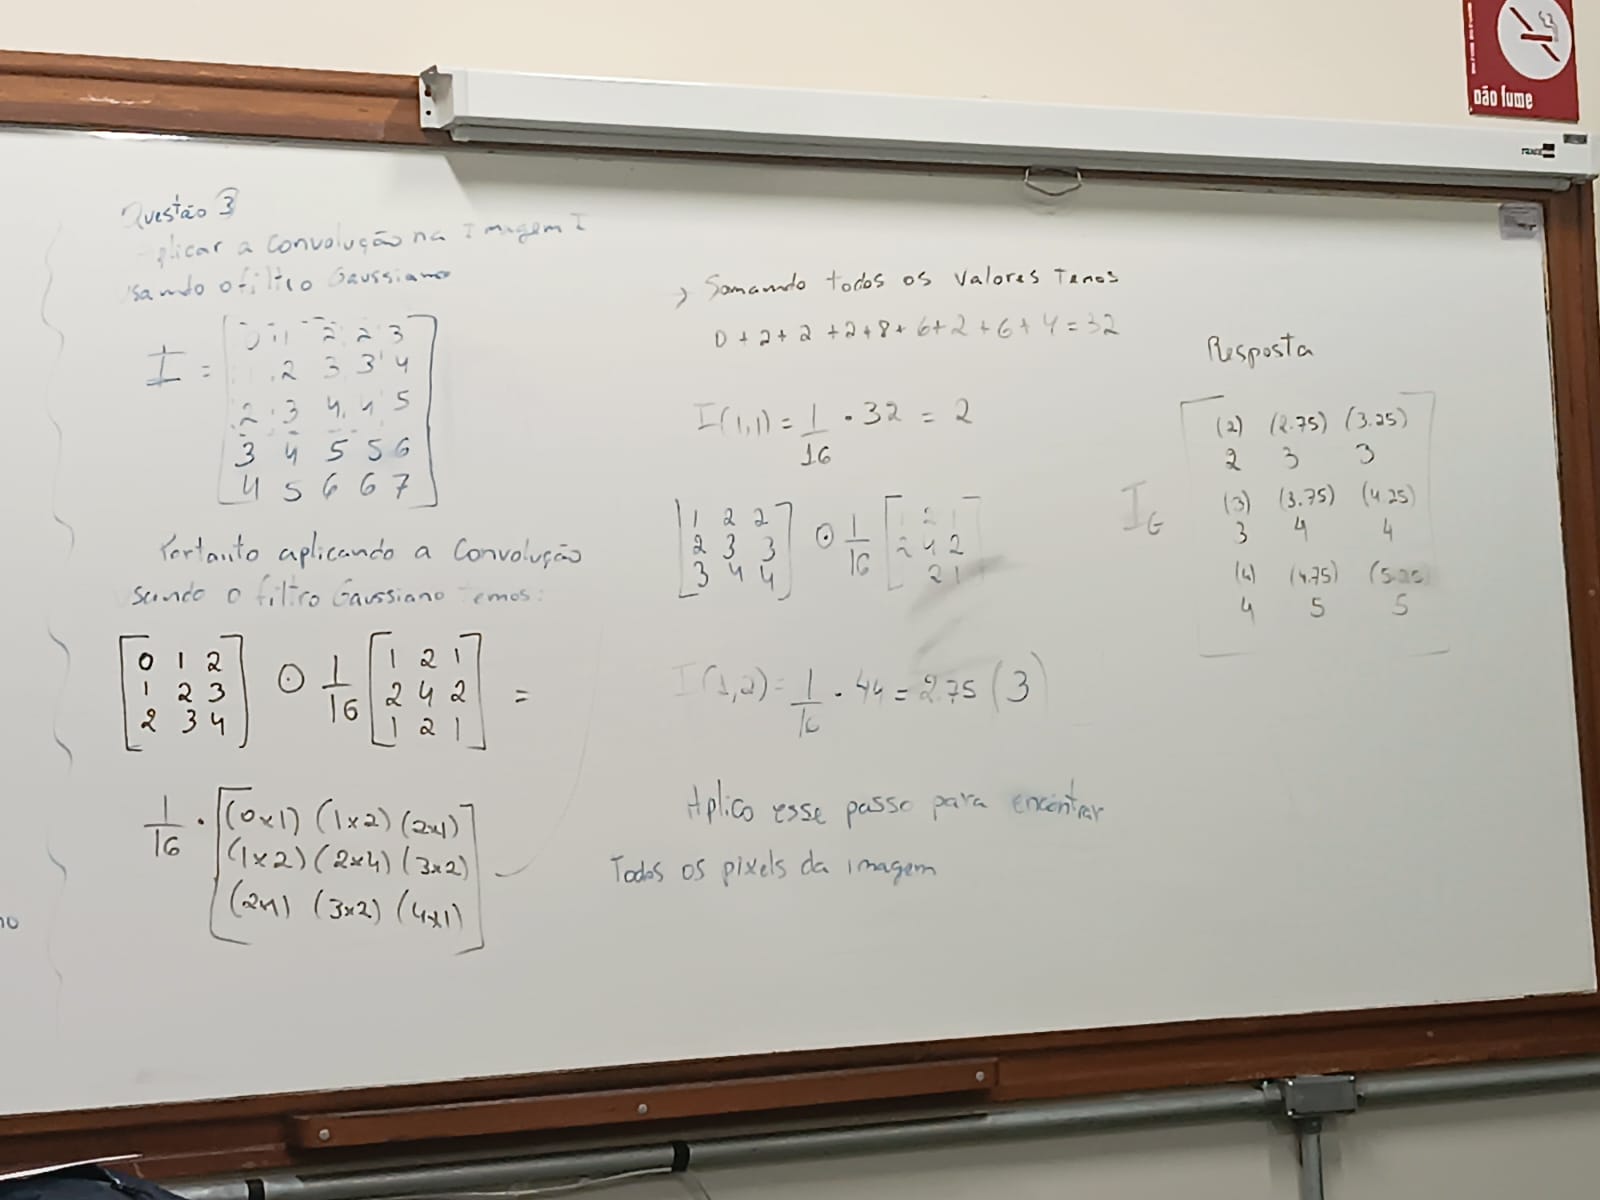 não fume
Questão 3
plicar a convolução na Imagem I
sando o filtro Gaussiano
I = [0 1 2 2 3
2 3 3 4
2 3 4 4 5
3 4 5 5 6
4 5 6 6 7]
Portanto aplicando a convolução
sando o filtro Gaussiano temos:
[0 1 2
1 2 3
2 3 4] ⊙ 1/16 [1 2 1
2 4 2
1 2 1] =
1/16 · [(0x1) (1x2) (2x1)
(1x2) (2x4) (3x2)
(2x1) (3x2) (4x1)]
Somando todos os valores temos
0 + 2 + 2 + 2 + 8 + 6 + 2 + 6 + 4 = 32
I(1,1) = 1/16 · 32 = 2
[1 2 2
2 3 3
3 4 4] ⊙ 1/16 [1 2 1
2 4 2
2 1]
I(1,2) = 1/16 · 44 = 2.75 (3)
Aplico esse passo para encontrar
Todos os pixels da imagem
Resposta
I_G
[(2) (2.75) (3.25)
2 3 3
(3) (3.75) (4.25)
3 4 4
(4) (4.75) (5.25)
4 5 5]